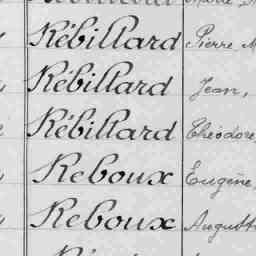 Rébillard Pierre M
Rébillard Jean,
Rébillard Théodore,
Reboux Eugène,
Reboux Auguste